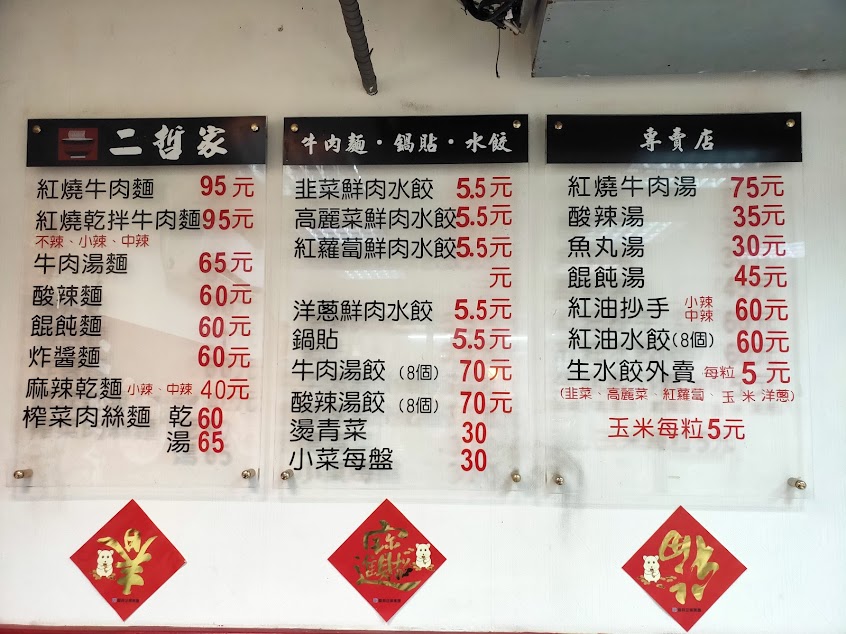 二哲家
紅燒牛肉麵 95元
紅燒乾拌牛肉麵 95元
不辣、小辣、中辣
牛肉湯麵 65元
酸辣麵 60元
餛飩麵 60元
炸醬麵 60元
麻辣乾麵 小辣、中辣 40元
榨菜肉絲麵 乾 60
湯 65
牛肉麵・鍋貼・水餃
韭菜鮮肉水餃 5.5元
高麗菜鮮肉水餃 5.5元
紅蘿蔔鮮肉水餃 5.5元
元
洋蔥鮮肉水餃 5.5元
鍋貼 5.5元
牛肉湯餃 (8個) 70元
酸辣湯餃 (8個) 70元
燙青菜 30
小菜每盤 30
專賣店
紅燒牛肉湯 75元
酸辣湯 35元
魚丸湯 30元
餛飩湯 45元
紅油抄手 小辣 中辣 60元
紅油水餃(8個) 60元
生水餃外賣 每粒 5元
(韭菜、高麗菜、紅蘿蔔、玉米 洋蔥)
玉米每粒5元